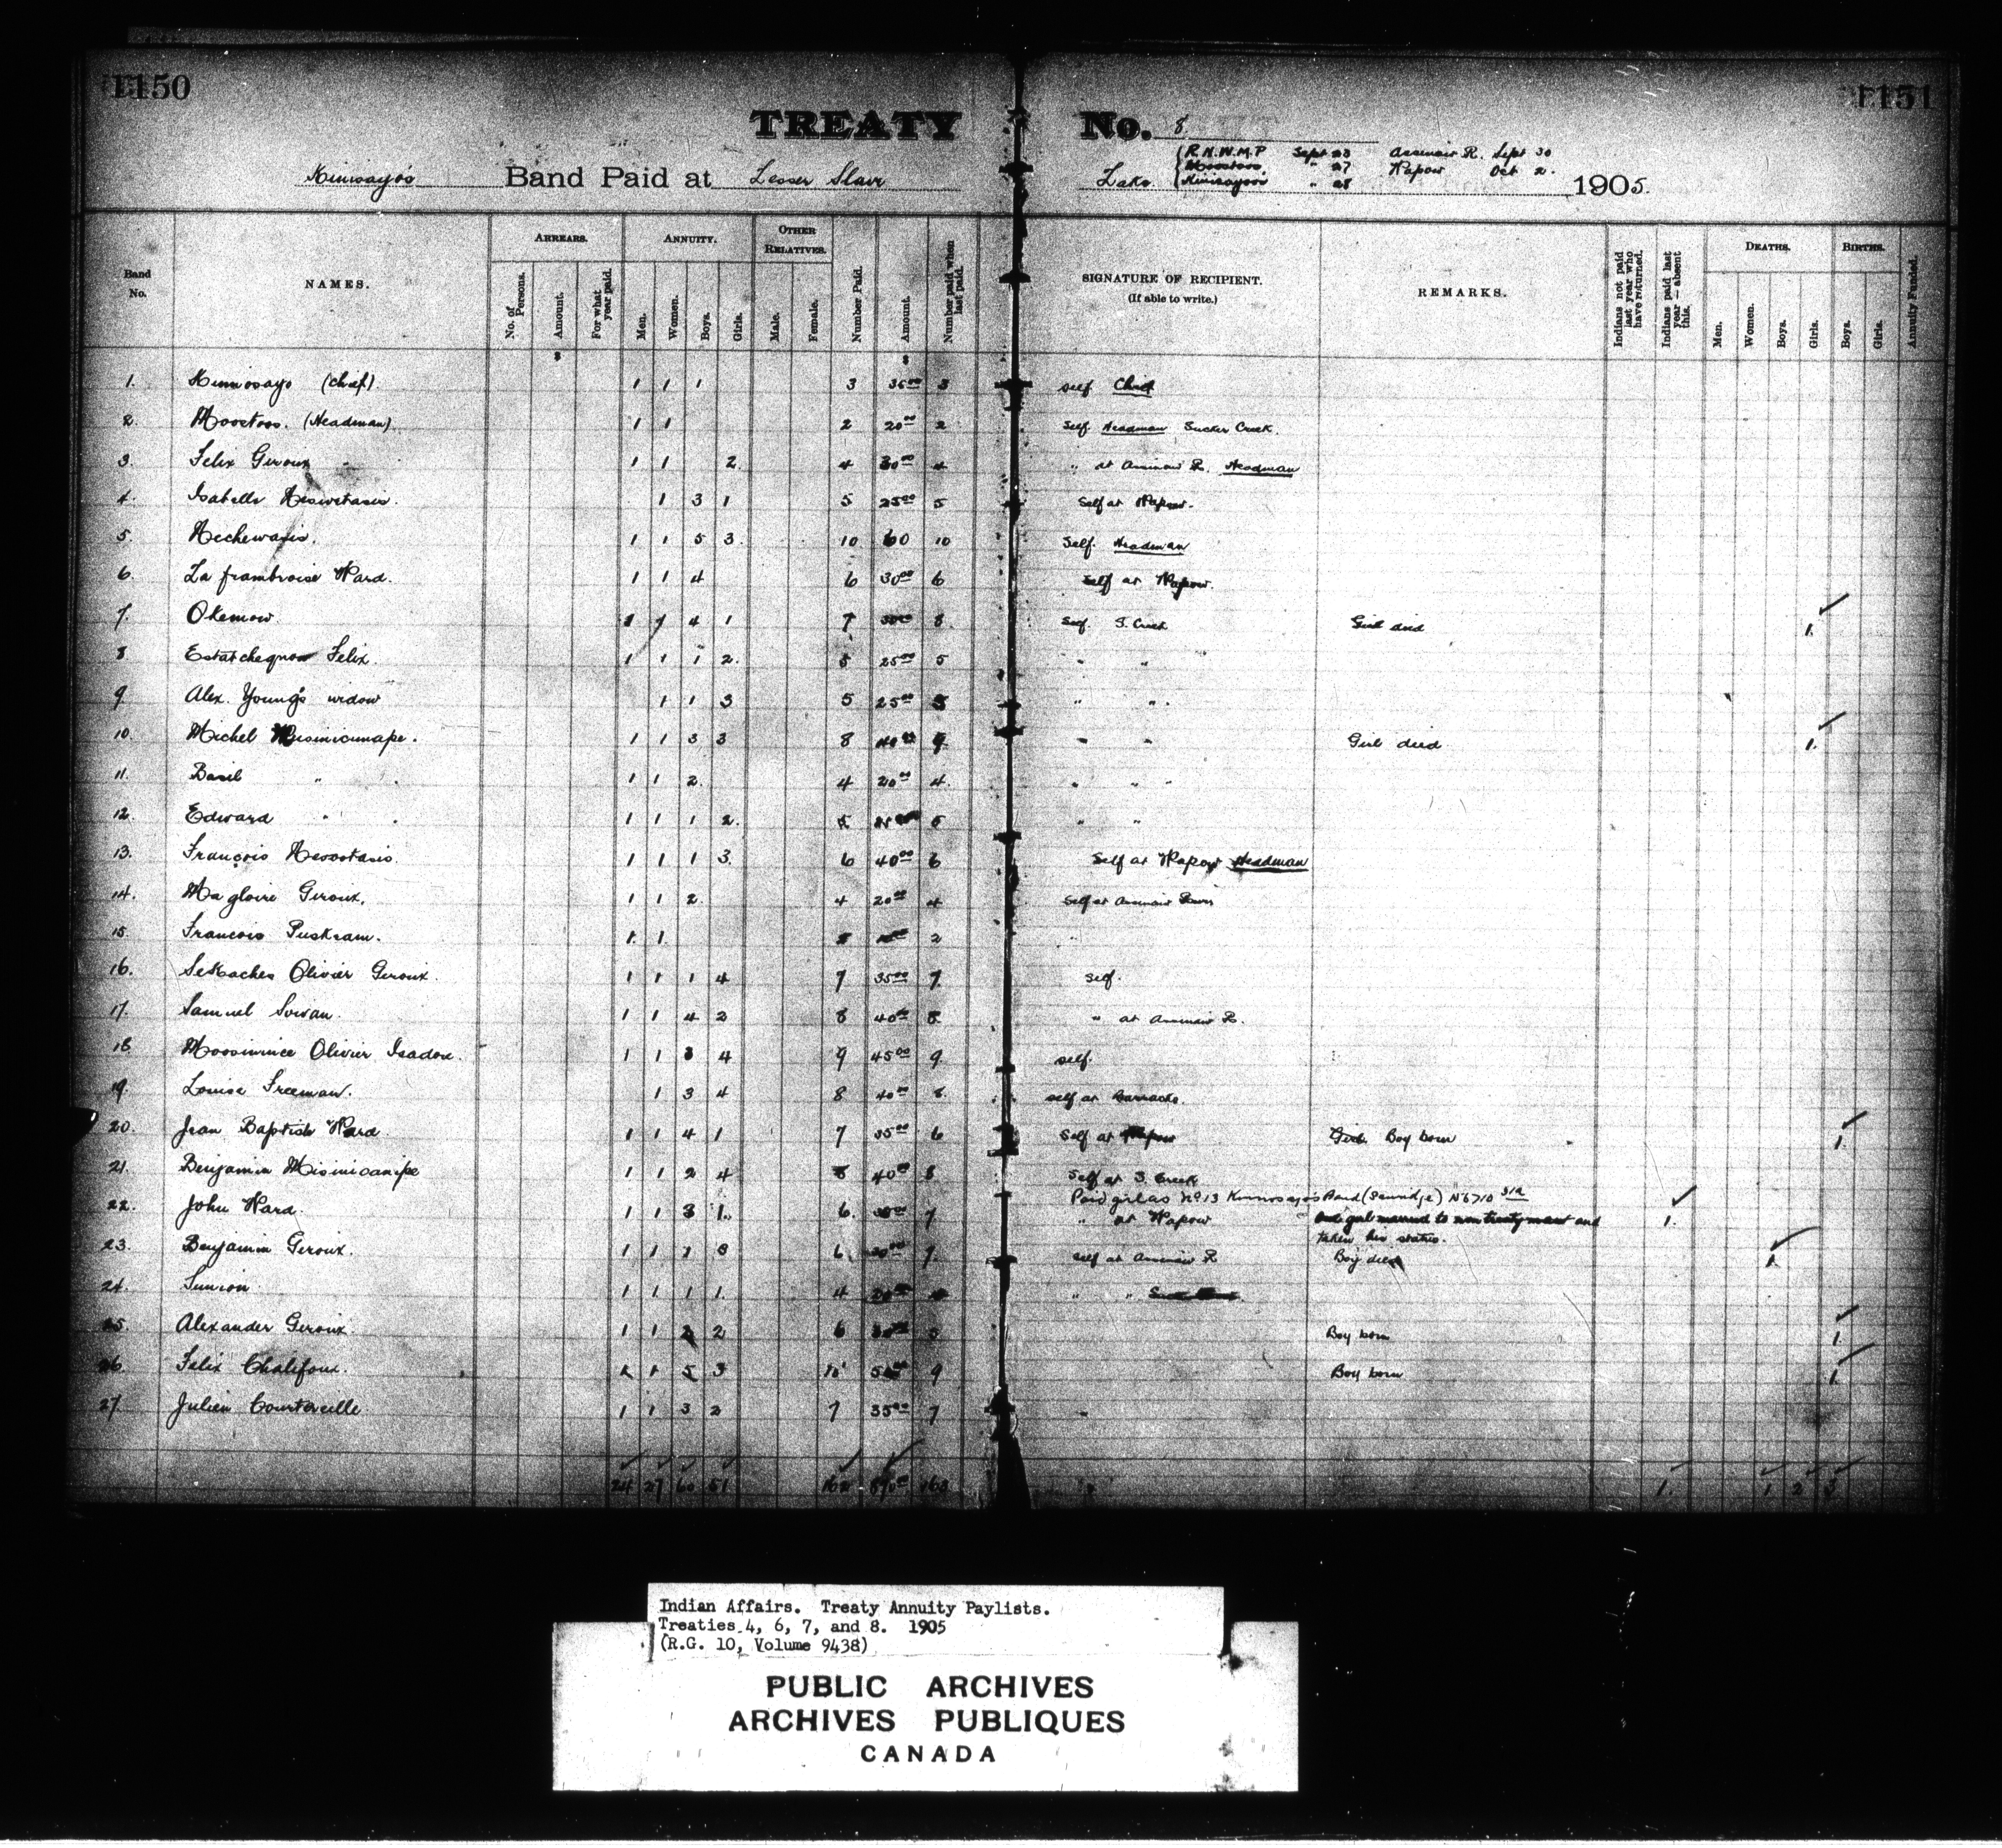 1150
1151
TREATY No. 8
Kinosayo's Band Paid at Lesser Slave Lake { R.N.W.M.P Sept 23 Assineau R. Sept 30
Moostoos " 27 Wapow Oct 2.
Kinosayoo " 28 1905.
Band No. NAMES. ARREARS. No. of Persons. Amount. For what year paid. ANNUITY. Men. Women. Boys. Girls. OTHER RELATIVES. Male. Female. Number Paid. Amount. Number paid when last paid. SIGNATURE OF RECIPIENT. (If able to write.) REMARKS. Indians not paid last year who have returned. Indians paid last year—absent this. DEATHS. Men. Women. Boys. Girls. BIRTHS. Boys. Girls. Annuity Funded.
1. Kinnosayo (Chief) 1 1 1 3 35.00 3 self Chief
2. Moostoos. (Headman) 1 1 2 20.00 2 Self. Headman Sucker Creek.
3. Felix Geroux 1 1 2 4 30.00 4 " at Assineau R. Headman
4. Isabelle 1 3 1 5 25.00 5 Self at Wapow.
5. Nechewasis. 1 1 5 3 10 60 10 Self. Headman
6. La frambroise Ward. 1 1 4 6 30.00 6 Self at Wapow.
7. Okemow 1 1 4 1 7 8 Self. S. Creek Girl died 1.
8. Felix. 1 1 1 2. 5 25.00 5 " "
9. Alex. Young's widow 1 1 3 5 25.00 5 " "
10. Michel Misinicunape. 1 1 3 3 8 40.00 9. " " Girl died 1.
11. Basil " 1 1 2. 4 20.00 4. " "
12. Edward " 1 1 1 2. 5 5 " "
13. François Nesootasis. 1 1 1 3. 6 40.00 6 Self at Wapow Headman
14. Magloire Geroux. 1 1 2. 4 20.00 4 Self at Assineau River
15. Francois Puskram. 1. 1. 2 "
16. Seskaches Olivier Geroux. 1 1 1 4 7 35.00 7. self.
17. Samuel Sowan. 1 1 4 2 8 40.00 8. " at Assineau R.
18. Moosinince Olivier Isadore. 1 1 3 4 9 45.00 9. self.
19. Louise Freeman. 1 3 4 8 40.00 8. self at Barracks.
20. Jean Baptiste Ward. 1 1 4 1 7 35.00 6 Self at Wapow Girl. Boy born 1.
21. Benjamin Misinicanipe 1 1 2 4 8 40.00 8 Self at S. Creek
Paid girl as No 13 Kinnosayo's Band (Sawridge)
22. John Ward. 1 1 3 1. 6. 30.00 7 " at Wapow One girl married to non treaty man and 1.
taken his status.
23. Benjamin Geroux. 1 1 1 3 6 30.00 7. self at Assineau R Boy died 1.
24. Sunion 1 1 1 1. 4 20.00 " "
25. Alexander Geroux. 1 1 2 2 6 30.00 5 Boy born 1.
26. Felix Chalifoux. 1 1 5 3 10 50.00 9 Boy born 1.
27. Julien Courtereille 1 1 3 2 7 35.00 7 "
24 27 60 51 162 163 1. 1 2 3
Indian Affairs. Treaty Annuity Paylists.
Treaties 4, 6, 7, and 8. 1905
(R.G. 10, Volume 9438)
PUBLIC ARCHIVES
ARCHIVES PUBLIQUES
CANADA